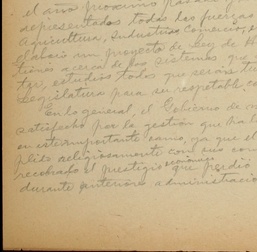 el año próximo pasado
representados todas las fuerzas
Agricultura, Industrias, Comercio, e
elaboró un proyecto de Ley de
tiones acerca de los sistemas que
tes, estudios todos que serán
Legislatura para ser
En lo general, el Gobierno de
satisfecho por la gestión que ha
en este importante ramo, ya que el
plido religiosamente con sus com
recobrado el prestigio económico que perdió
durante anteriores administracio